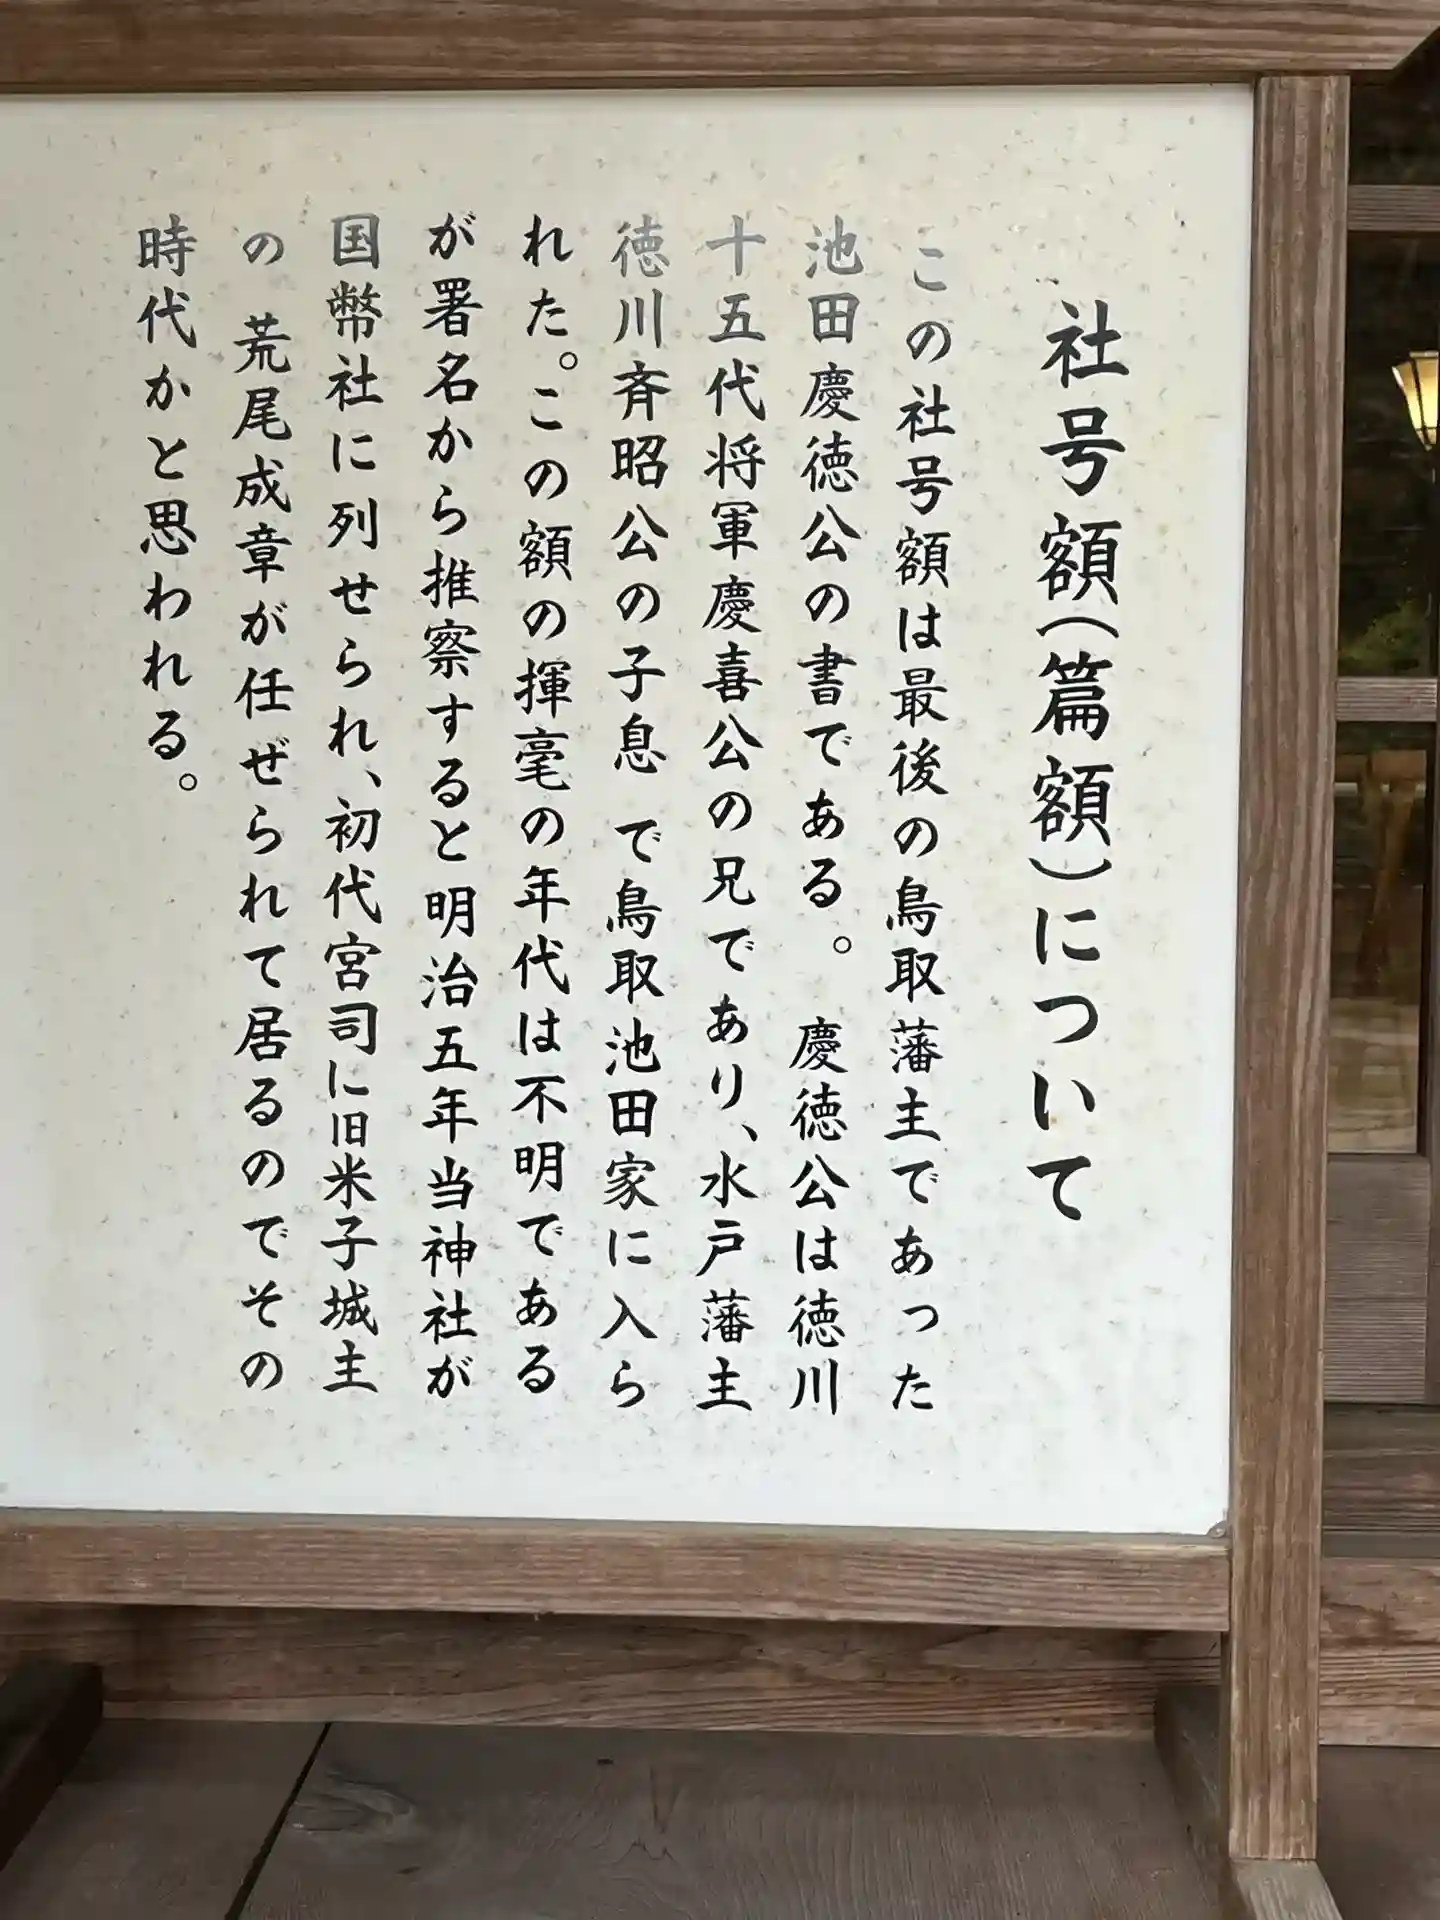 社号額(篇額)について
この社号額は最後の鳥取藩主であった
池田慶徳公の書である。慶徳公は徳川
十五代将軍慶喜公の兄であり、水戸藩主
徳川斉昭公の子息で鳥取池田家に入ら
れた。この額の揮毫の年代は不明である
が署名から推察すると明治五年当神社が
国幣社に列せられ、初代宮司に旧米子城主
の荒尾成章が任ぜられて居るのでその
時代かと思われる。